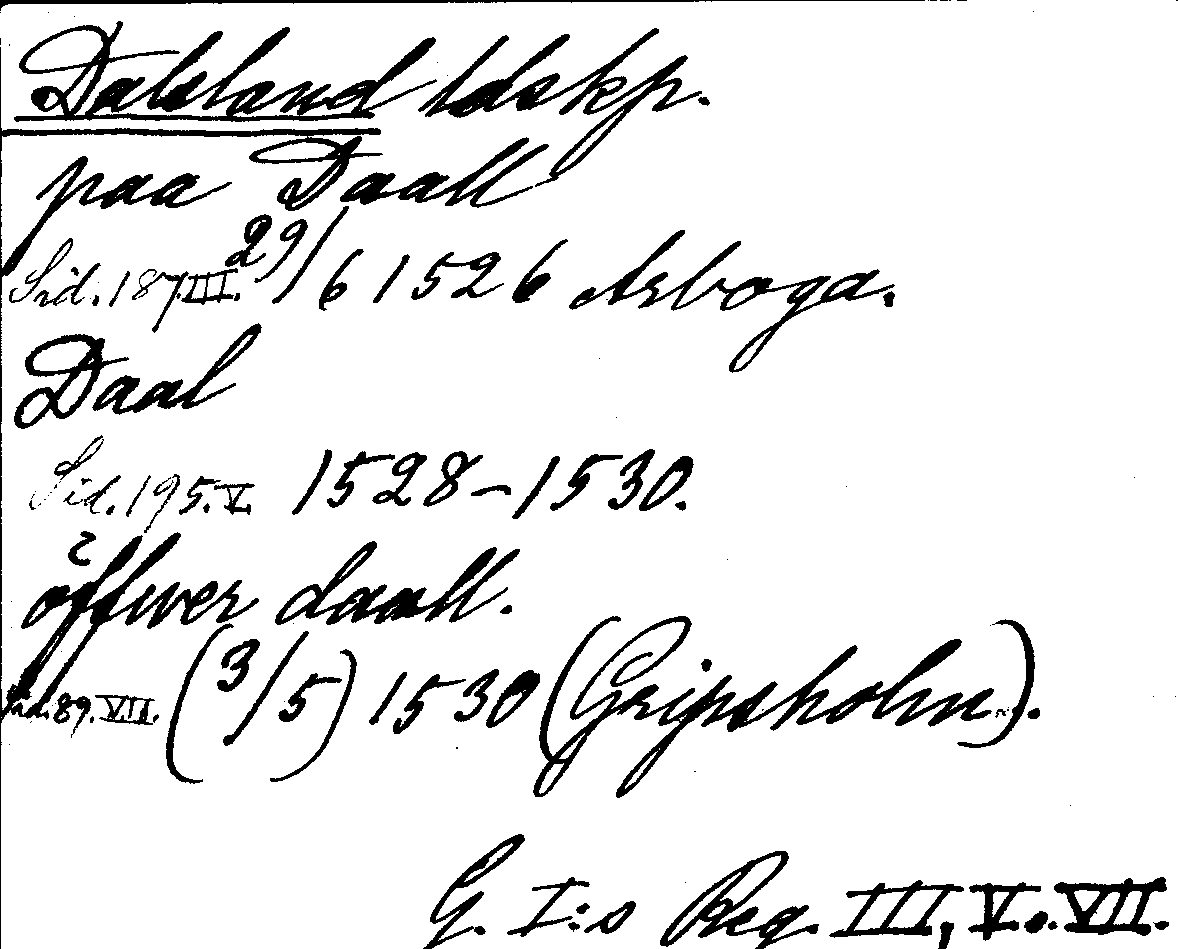 Dalsland ldskp.
paa Daall
Sid. 187.III. 29/6 1526 Arboga.
Daal
Sid. 195.V. 1528-1530.
öffwer daall.
Sid. 89. VII. (3/5) 1530 (Gripsholm).
G. I:s Reg. III, V. o. VII.